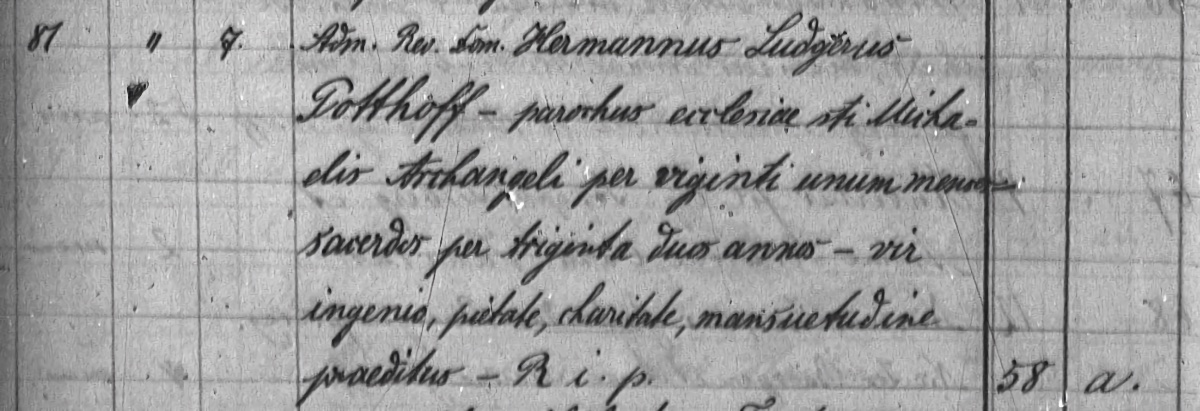 81 " 7. Adm. Rev. Dom. Hermannus Ludgerus
Potthoff – parochus ecclesiae sti Micha=
elis Archangeli per viginti unum menses –
sacerdos per triginta duos annos – vir
ingenio, pietate, charitate, mansuetudine
praeditus – R i. p. 58 a.